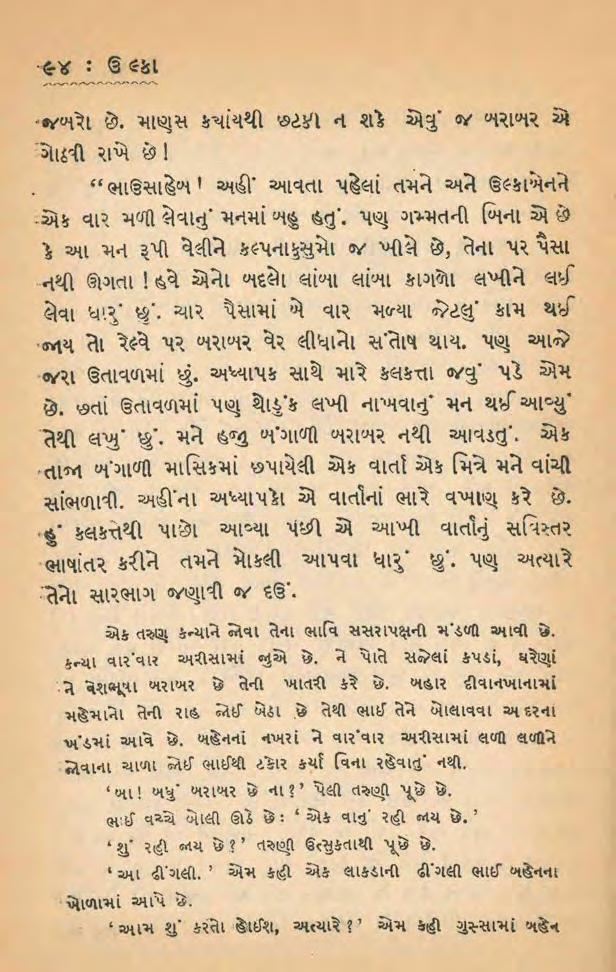 ૯૪ : ઉલ્કા
જબરો છે. માણસ કયાંયથી છટકી ન શકે એવું જ બરાબર એ
ગોઠવી રાખે છે!
“ભાઉસાહેબ! અહીં આવતા પહેલાં તમને અને ઉલ્કાબેનને
એક વાર મળી લેવાનું મનમાં બહુ હતું. પણ ગમ્મતની બિના એ છે
કે આ મન રૂપી વેલીને કલ્પનાકુસુમો જ ખીલે છે, તેના પર પૈસા
નથી ઊગતા! હવે એનો બદલો લાંબા લાંબા કાગળો લખીને લઈ
લેવા ધારું છું. ચાર પૈસામાં બે વાર મળ્યા જેટલું કામ થઈ
જાય તો રેલ્વે પર બરાબર વેર લીધાનો સંતોષ થાય. પણ આજે
જરા ઉતાવળમાં છું. અધ્યાપક સાથે મારે કલકત્તા જવું પડે એમ
છે. છતાં ઉતાવળમાં પણ થોડુંક લખી નાખવાનું મન થઈ આવ્યું
તેથી લખું છું. મને હજુ બંગાળી બરાબર નથી આવડતું. એક
તાજા બંગાળી માસિકમાં છપાયેલી એક વાર્તા એક મિત્રે મને વાંચી
સાંભળાવી. અહીંના અધ્યાપકો એ વાર્તાનાં ભારે વખાણ કરે છે.
હું કલકત્તેથી પાછો આવ્યા પછી એ આખી વાર્તાનું સવિસ્તર
ભાષાંતર કરીને તમને મોકલી આપવા ધારું છું. પણ અત્યારે
તેનો સારભાગ જણાવી જ દઉં.
એક તરુણ કન્યાને જોવા તેના ભાવિ સસરાપક્ષની મંડળી આવી છે.
કન્યા વારંવાર અરીસામાં જુએ છે. ને પોતે સજેલાં કપડાં, ઘરેણાં
ને વેશભૂષા બરાબર છે તેની ખાતરી કરે છે. બહાર દીવાનખાનામાં
મહેમાનો તેની રાહ જોઈ બેઠા છે તેથી ભાઈ તેને બોલાવવા અંદરના
ખંડમાં આવે છે. બહેનનાં નખરાં ને વારંવાર અરીસામાં લળી લળીને
જોવાના ચાળા જોઈ ભાઈથી ટકોર કર્યા વિના રહેવાતું નથી.
‘બા! બધું બરાબર છે ના?’ પેલી તરુણી પૂછે છે.
ભાઈ વચ્ચે બોલી ઊઠે છેઃ ‘એક વાનું રહી જાય છે.’
‘શું રહી જાય છે?’ તરુણી ઉત્સુકતાથી પૂછે છે.
‘આ ઢીંગલી.’ એમ કહી એક લાકડાની ઢીંગલી ભાઈ બહેનના
ખોળામાં આપે છે.
‘આમ શું કરતો હોઈશ, અત્યારે?’ એમ કહી ગુસ્સામાં બહેન